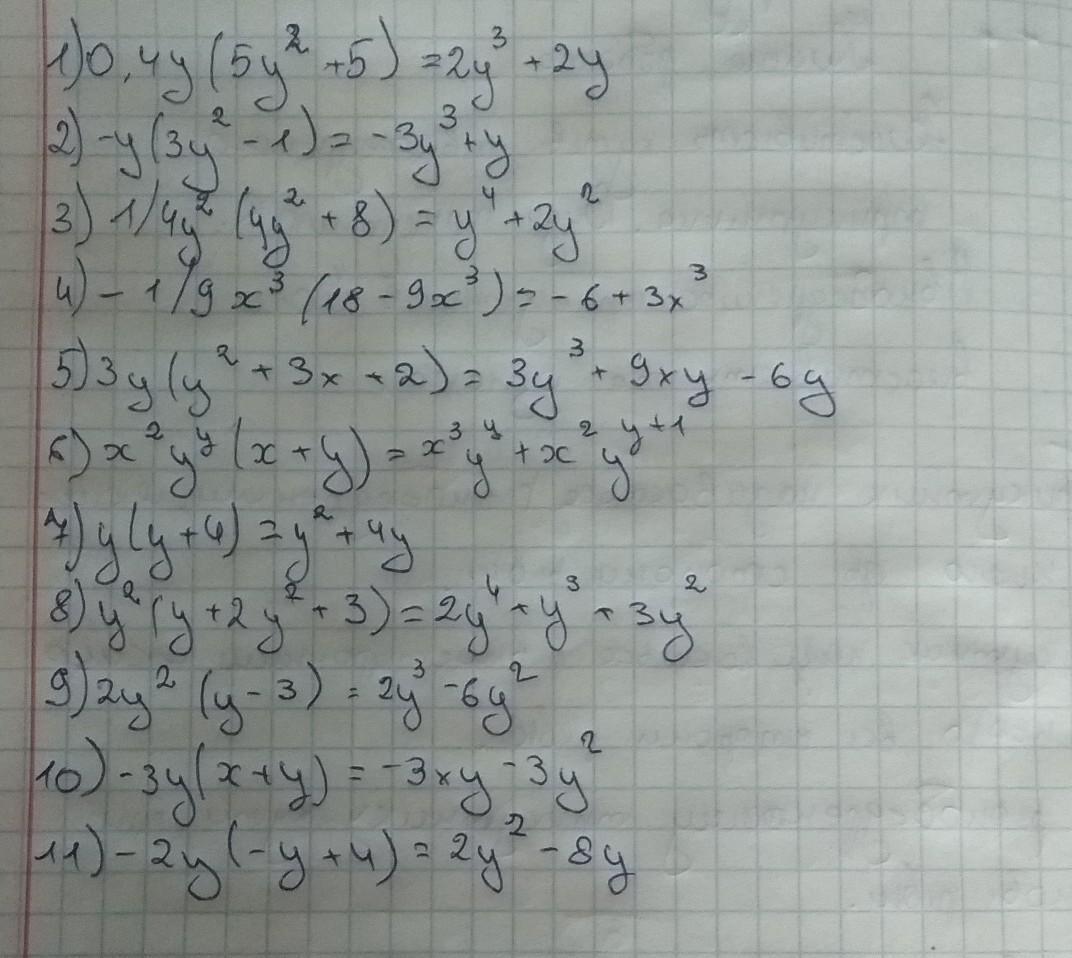 1) 0,4y (5y² + 5) = 2y³ + 2y
2) -y (3y² - 1) = -3y³ + y
3) 1/4y² (4y² + 8) = y⁴ + 2y²
4) - 1/9 x³ (18 - 9x³) = - 6 + 3x³
5) 3y (y² + 3x + 2) = 3y³ + 9xy - 6y
6) x²yʸ (x + y) = x³yʸ + x²yʸ⁺¹
7) y (y + 4) = y² + 4y
8) y² (y + 2y² + 3) = 2y⁴ + y³ + 3y²
9) 2y² (y - 3) = 2y³ - 6y²
10) -3y (x + y) = -3xy - 3y²
11) - 2y (-y + 4) = 2y² - 8y